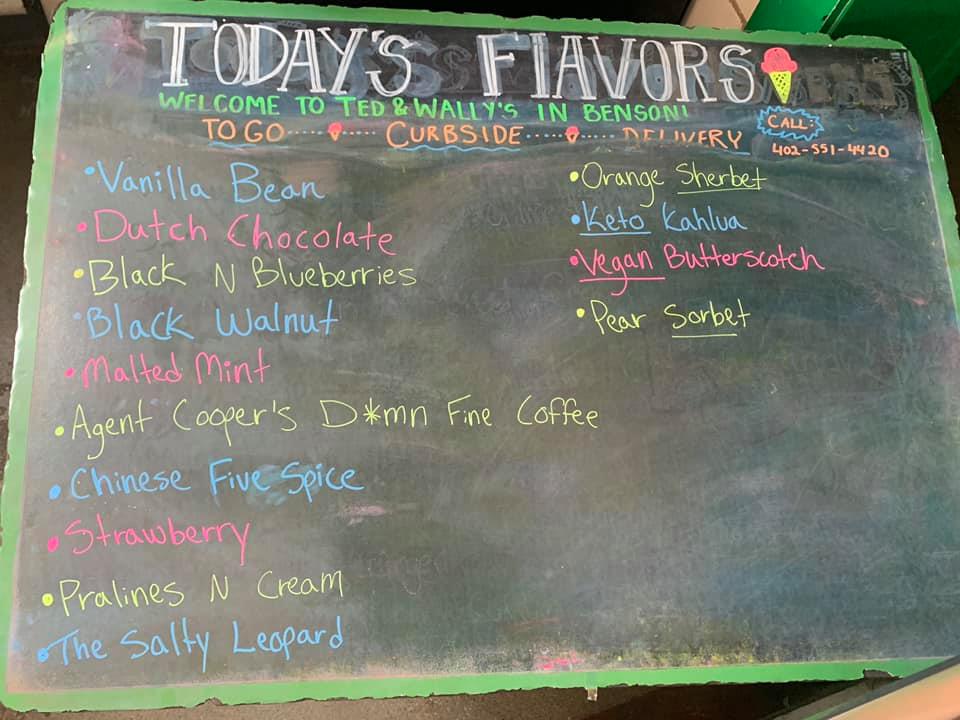 TODAY'S FLAVORS
WELCOME TO TED & WALLY'S IN BENSON!
TO GO CURBSIDE DELIVERY
CALL:
402-551-4420
• Vanilla Bean
• Dutch Chocolate
• Black N Blueberries
• Black Walnut
• Malted Mint
• Agent Cooper's D*mn Fine Coffee
• Chinese Five Spice
• Strawberry
• Pralines N Cream
• The Salty Leopard
• Orange Sherbet
• Keto Kahlua
• Vegan Butterscotch
• Pear Sorbet